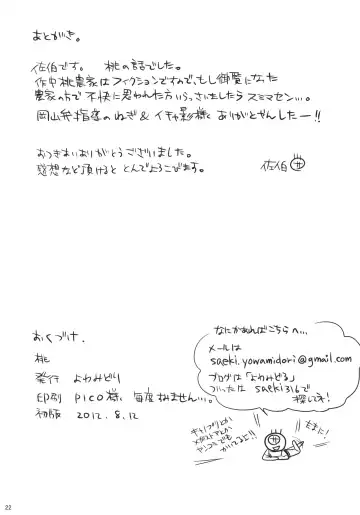 あとがき。
佐伯です。 桃の話でした。
作中桃農家はフィクションですので、もし御覧になった
農家の方で不快に思われた方いらっしゃいましたらスミマセン…。
岡山弁指導のねぎ& イキャ影様 ありがとやんしたー!!
おつきあいありがとうございました。
感想など頂けると とんでよろこびます。
佐伯
おくづけ.
桃
発行 よわみどり
印刷 PICO様 毎度すみません…。
初版 2012.8.12
なにかあればこちらへ…
メールは
saeki.yowamidori@gmail.com
ブログは「よわみどる」
ついったは saeki316で
探してネ!
ヤンコミでも
かいてるど!!
たまに!
22